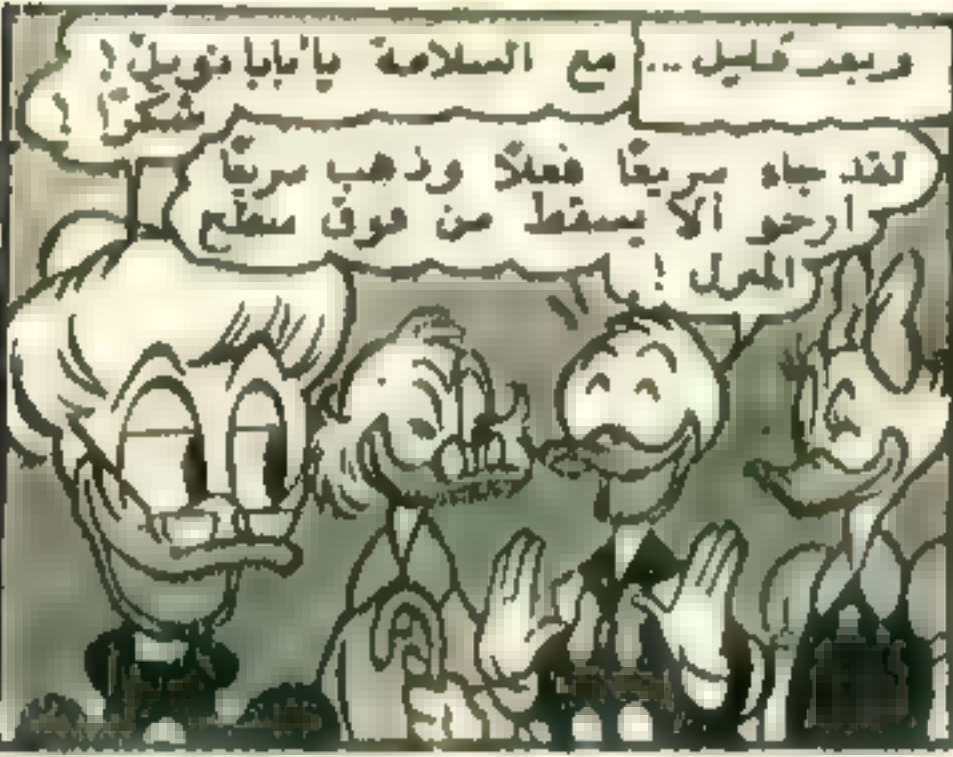 وبعد قليل ...
مع السلامة يا بابا نويل !
شكرًا !
لقد جاء سريعًا فعلًا وذهب سريعًا
أرجو ألا يسقط من فوق سطح
المنزل !